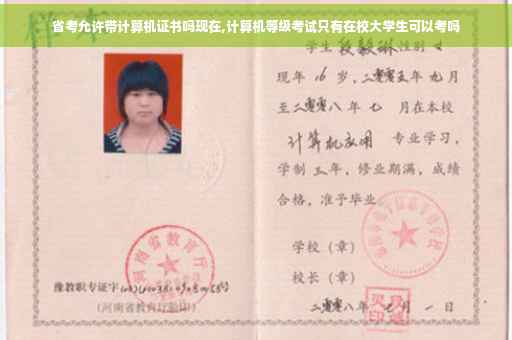 省考允许带计算机证书吗现在,计算机等级考试只有在校大学生可以考吗
样本
学生 段毅琳 性别 女
现年 16 岁,二零零五年 九月
至二零零八年 七 月在本校
计算机应用 专业学习,
学制 三年,修业期满,成绩
合格,准予毕业
学校(章)
校长(章)
二零零八年 七 月 一 日
河南省教育厅
豫教职专证字
(河南省教育厅验印)